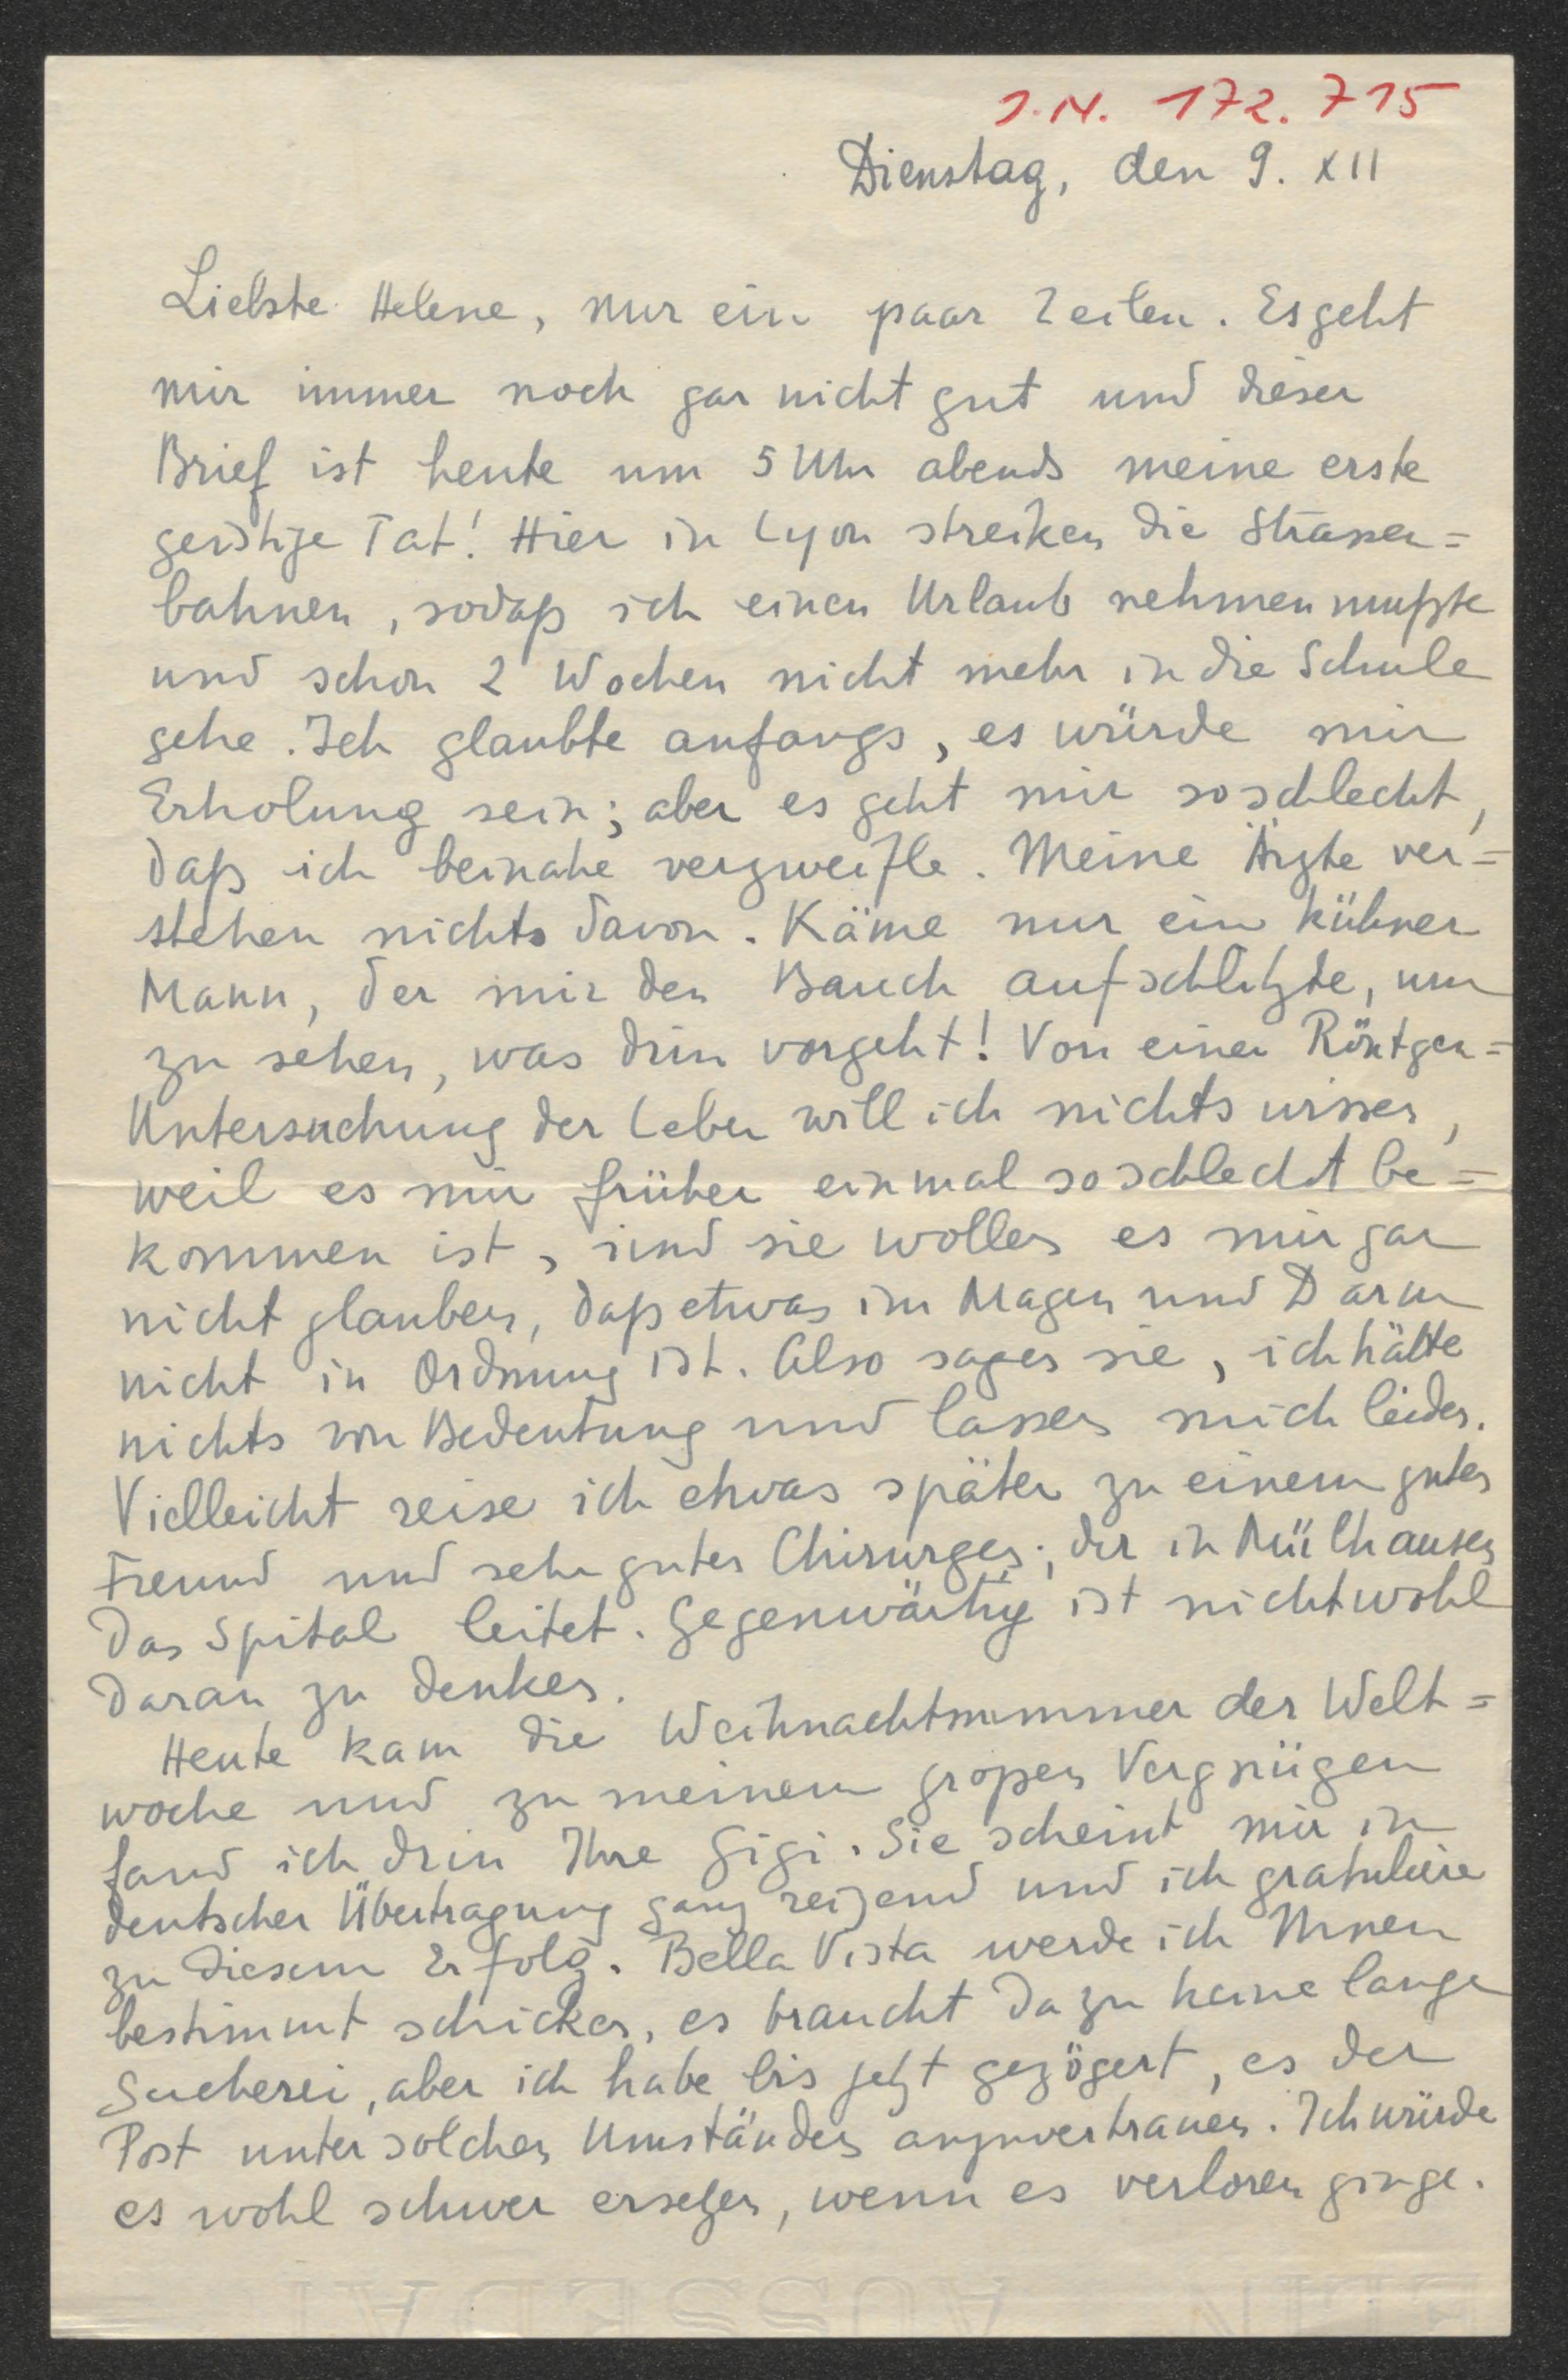 J.N. 172.715
Dienstag, den 9. XII
Liebste Helene, nur ein paar Zeilen. Es geht
mir immer noch gar nicht gut und dieser
Brief ist heute um 5 Uhr abends meine erste
geistige Tat! Hier in Lyon streiken die Strassen=
bahnen, sodaß ich einen Urlaub nehmen mußte
und schon 2 Wochen nicht mehr in die Schule
gehe. Ich glaubte anfangs, es würde mir
Erholung sein; aber es geht mir so schlecht,
daß ich beinahe verzweifle. Meine Ärzte ver=
stehen nichts davon. Käme nur ein kühner
Mann, der mir den Bauch aufschlitzte, um
zu sehen, was drin vorgeht! Von einer Röntgen=
Untersuchung der Leber will ich nichts wissen,
weil es mir früher einmal so schlecht be=
kommen ist, und sie wollen es mir gar
nicht glauben, daß etwas im Magen und Darm
nicht in Ordnung ist. Also sagen sie, ich hätte
nichts von Bedeutung und lassen mich leiden.
Vielleicht reise ich etwas später zu einem guten
Freund und sehr guten Chirurgen, der in Mülhausen
das Spital leitet. Gegenwärtig ist nicht wohl
daran zu denken.
Heute kam die Weihnachtsnummer der Welt=
woche und zu meinem großen Vergnügen
fand ich drin Ihre Gigi. Sie scheint mir in
deutscher Übertragung ganz reizend und ich gratuliere
zu diesem Erfolg. Bella Vista werde ich Ihnen
bestimmt schicken, es braucht dazu keine lange
Sucherei, aber ich habe bis jetzt gezögert, es der
Post unter solchen Umständen anzuvertrauen. Ich würde
es wohl schwer ersetzen, wenn es verloren ginge.